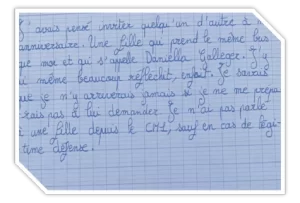 J'avais pensé inviter quelqu'un d'autre à m
anniversaire. Une fille qui prend le même bus
que moi et qui s'appelle Daniella Gelleger. J'y
ai même beaucoup réfléchit, enfait. Je savais
que je n'y arriverais jamais si je ne me prépa
rais pas à lui demander. Je n'ai pas parlé
à une fille depuis le CM1, sauf en cas de légi-
time défense.